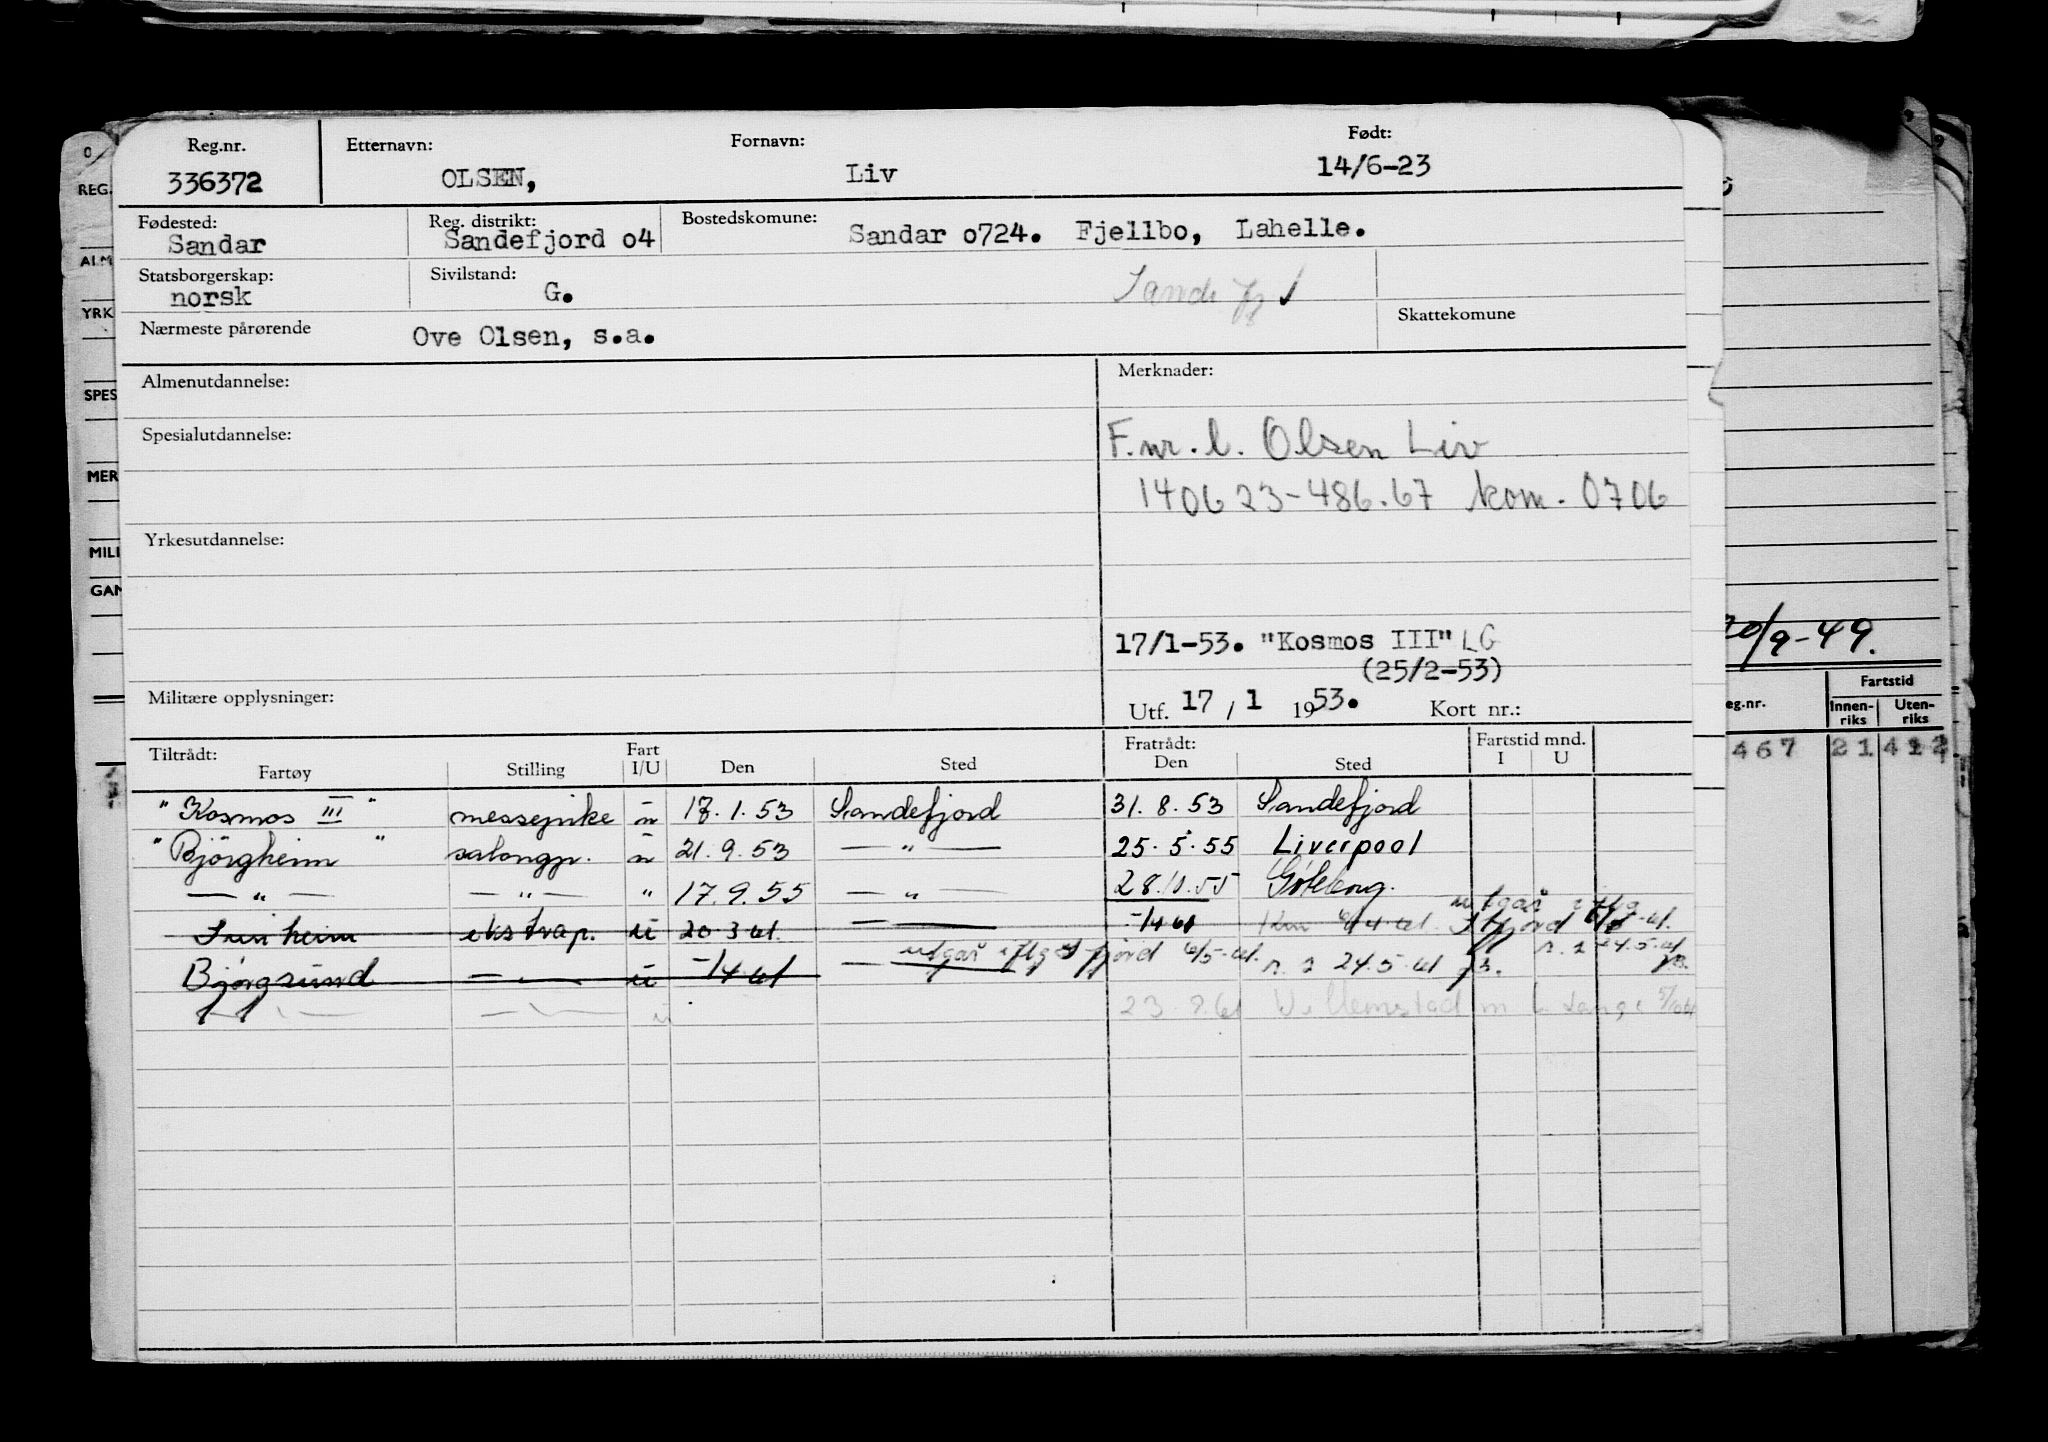 Reg.nr. Etternavn: Fornavn: Født:
336372 OLSEN, Liv 14/6-23
Fødested: Reg. distrikt: Bostedskomune:
Sandar Sandefjord o4 Sandar o724. Fjellbo, Lahelle.
Statsborgerskap: Sivilstand:
norsk G.
Nærmeste pårørende Ove Olsen, s.a. Skattekomune
Almenutdannelse: Merknader:
Spesialutdannelse: F.nr. l. Olsen Liv
140623-486.67 kom. 0706
Yrkesutdannelse:
17/1-53. "Kosmos III" LG
(25/2-53)
Militære opplysninger: Utf. 17 / 1 1953. Kort nr.:
Tiltrådt: Fart Fratrådt: Fartstid mnd.
Fartøy Stilling I/U Den Sted Den Sted I U
"Kosmos III" messepike u 17.1.53 Sandefjord 31.8.53 Sandefjord
"Björgheim" salongp. u 21.9.53 — " — 25.5.55 Liverpool
— " — — " — " 17.9.55 — " — 28.11.55 Göteborg.
utgår iflg
heim ekstrap. u 20.3.61. — -/4 61 6/4.61. S.fjord 6/5-61.
utgår iflg S fjord 6/5-61. 24.5.61
Bjørgsund — " — u -/4 61 — 24.5.61
— " — — " — u 23.8.61 Willemstad
REG.
ALM
YRK
SPES
MER
MILI
GAN
20/9-49.
Fartstid
eg.nr. Innen-riks Uten-riks
467 21 412